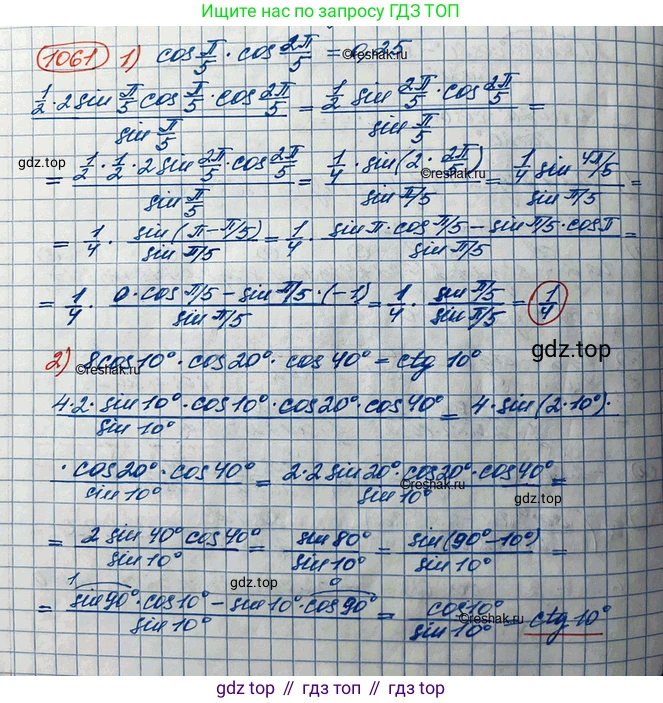 Ищите нас по запросу ГДЗ ТОП
1061 1) cos π/5 · cos 2π/5 = 0,25
(1/2 · 2 sin π/5 cos π/5 · cos 2π/5) / (sin π/5) = (1/2 sin 2π/5 · cos 2π/5) / (sin π/5) =
gdz.top
= (1/2 · 1/2 · 2 sin 2π/5 · cos 2π/5) / (sin π/5) = (1/4 · sin(2 · 2π/5)) / (sin π/5) = (1/4 sin 4π/5) / (sin π/5) =
©reshak.ru
= 1/4 · (sin(π - π/5)) / (sin π/5) = 1/4 · (sin π · cos π/5 - sin π/5 · cos π) / (sin π/5) =
= 1/4 · (0 · cos π/5 - sin π/5 · (-1)) / (sin π/5) = 1/4 · (sin π/5) / (sin π/5) = 1/4
©reshak.ru
gdz.top
2) 8cos10° · cos20° · cos40° = ctg 10°
©reshak.ru
(4·2 · sin10° · cos10° · cos20° · cos40°) / (sin 10°) = 4 · sin(2·10°) ·
(· cos20° · cos40°) / (sin10°) = (2·2 sin20° · cos20° · cos40°) / (sin10°) =
©reshak.ru
gdz.top
= (2 sin 40° cos40°) / (sin10°) = (sin80°) / (sin10°) = (sin(90° - 10°)) / (sin10°) =
gdz.top
1 0
= (sin90° · cos10° - sin10° · cos90°) / (sin10°) = (cos10°) / (sin10°) = ctg10°
©reshak.ru
gdz.top // гдз топ // gdz.top